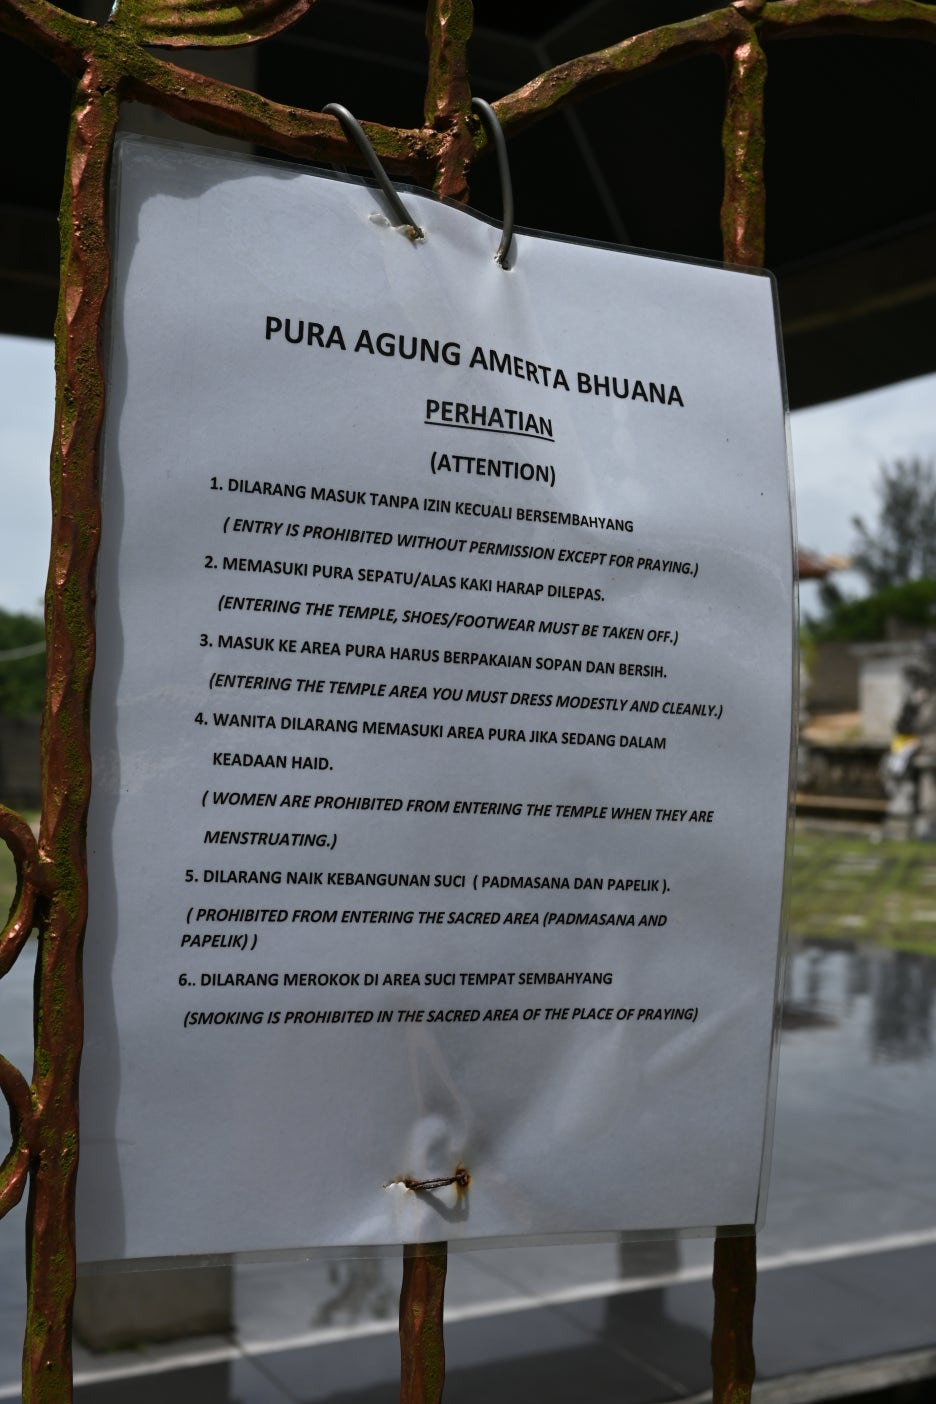 PURA AGUNG AMERTA BHUANA
PERHATIAN
(ATTENTION)
1. DILARANG MASUK TANPA IZIN KECUALI BERSEMBAHYANG
( ENTRY IS PROHIBITED WITHOUT PERMISSION EXCEPT FOR PRAYING.)
2. MEMASUKI PURA SEPATU/ALAS KAKI HARAP DILEPAS.
(ENTERING THE TEMPLE, SHOES/FOOTWEAR MUST BE TAKEN OFF.)
3. MASUK KE AREA PURA HARUS BERPAKAIAN SOPAN DAN BERSIH.
(ENTERING THE TEMPLE AREA YOU MUST DRESS MODESTLY AND CLEANLY.)
4. WANITA DILARANG MEMASUKI AREA PURA JIKA SEDANG DALAM
KEADAAN HAID.
( WOMEN ARE PROHIBITED FROM ENTERING THE TEMPLE WHEN THEY ARE
MENSTRUATING.)
5. DILARANG NAIK KEBANGUNAN SUCI ( PADMASANA DAN PAPELIK ).
( PROHIBITED FROM ENTERING THE SACRED AREA (PADMASANA AND
PAPELIK) )
6.. DILARANG MEROKOK DI AREA SUCI TEMPAT SEMBAHYANG
(SMOKING IS PROHIBITED IN THE SACRED AREA OF THE PLACE OF PRAYING)